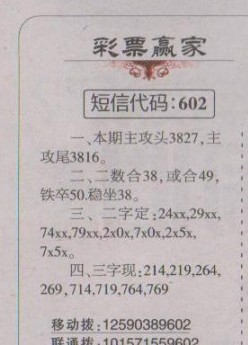 彩票赢家
短信代码:602
一、本期主攻头3827,主
攻尾3816。
二、二数合38,或合49,
铁卒50.稳坐38。
三、二字定:24xx,29xx,
74xx,79xx,2x0x,7x0x,2x5x,
7x5x。
四、三字现:214,219,264,
269,714,719,764,769
移动拨:12590389602
联通拨:101571559602